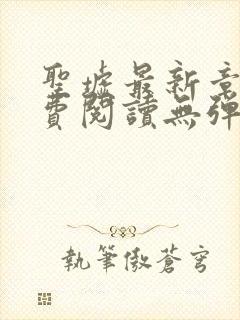 聖墟最新章
費閱讀無彈
執筆傲蒼穹